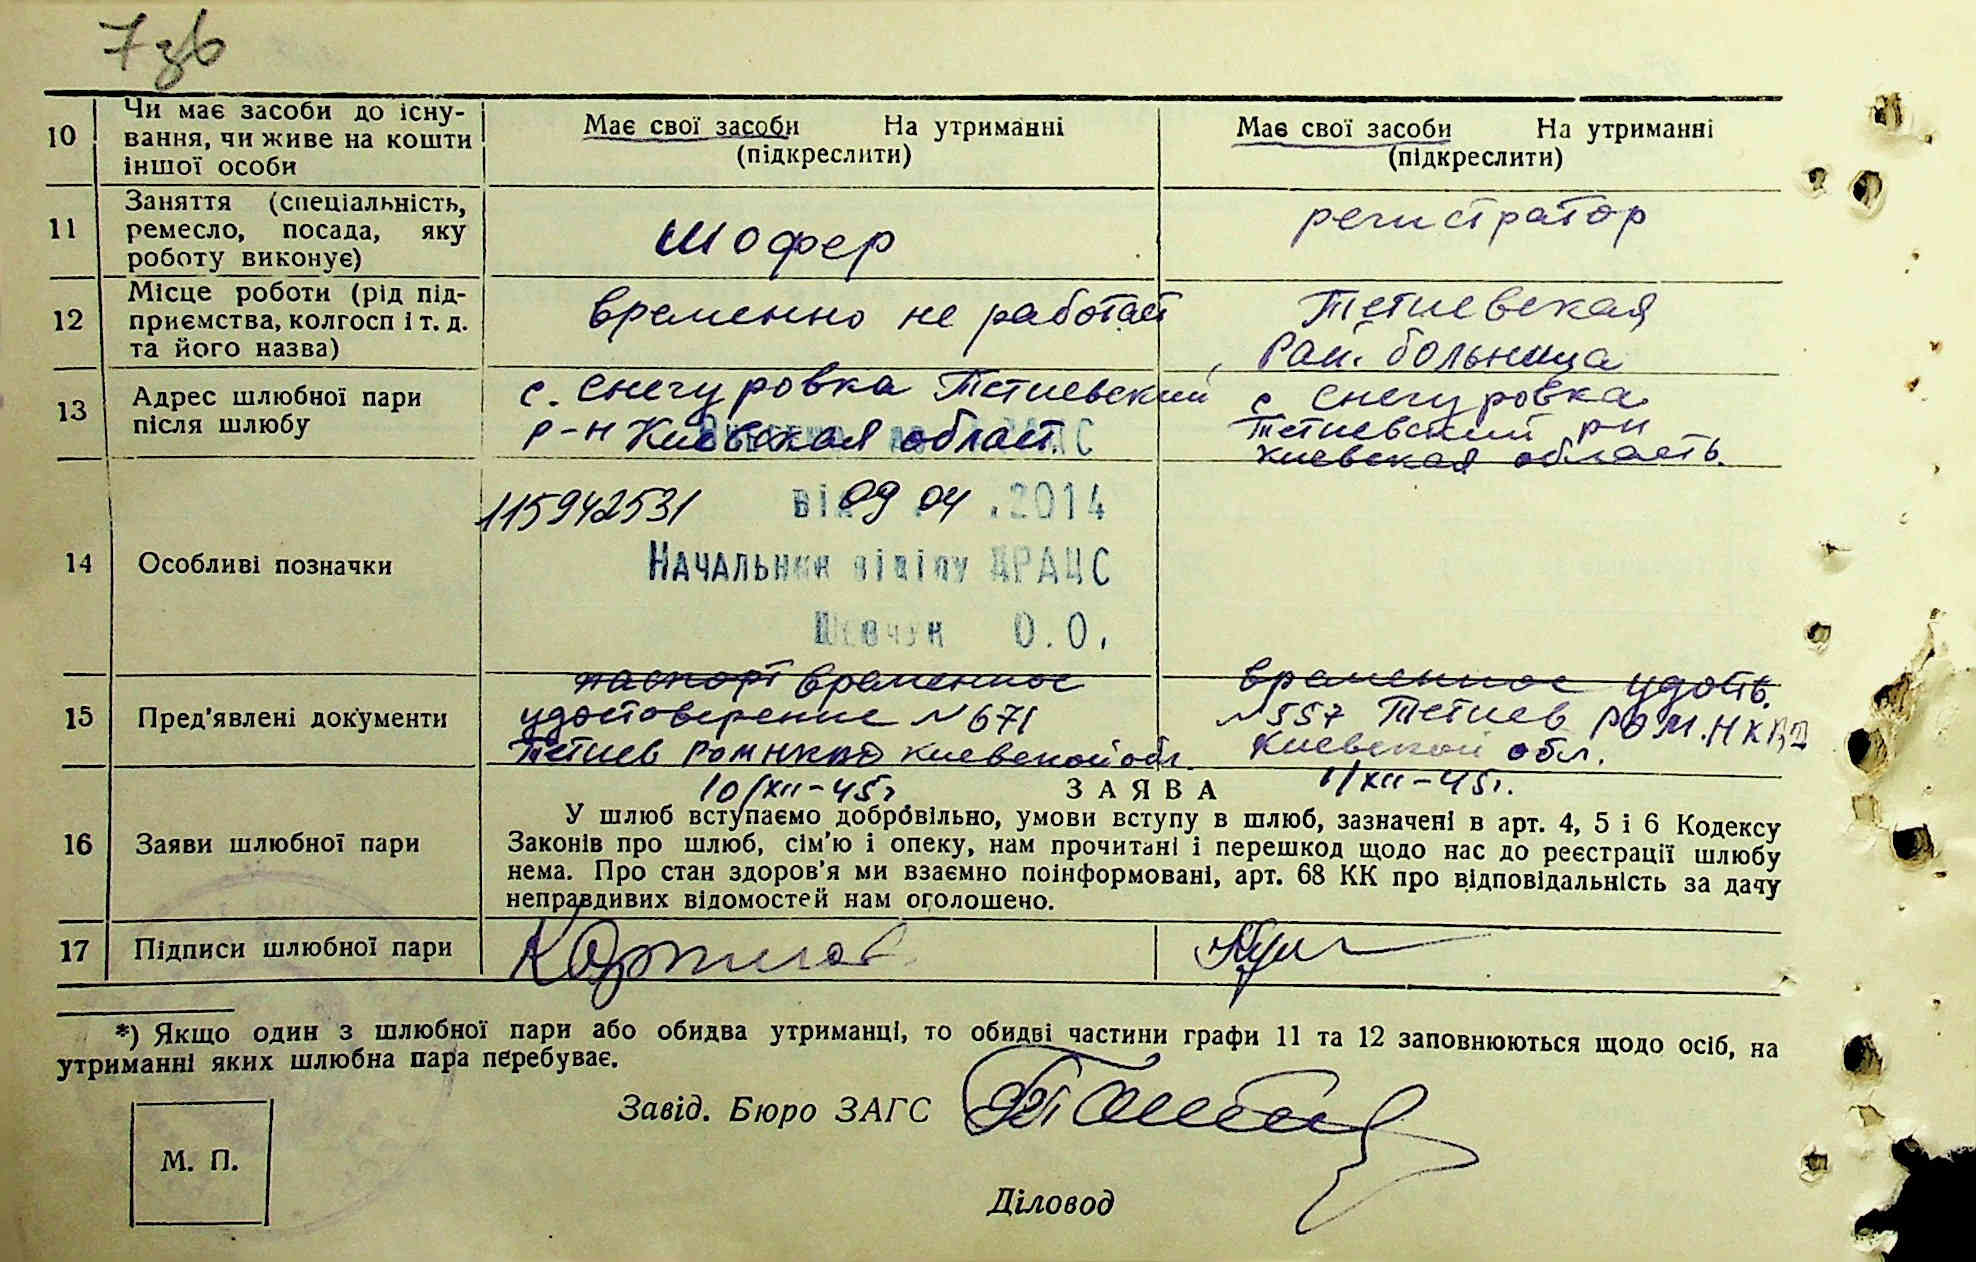 7зв
10 Чи має засоби до існу-
вання, чи живе на кошти
іншої особи
Має свої засоби На утриманні
(підкреслити)
Має свої засоби На утриманні
(підкреслити)
11 Заняття (спеціальність,
ремесло, посада, яку
роботу виконує)
шофер
регистратор
12 Місце роботи (рід під-
приємства, колгосп і т. д.
та його назва)
временно не работает
Тетиевская
Рай. больница
13 Адрес шлюбної пари
після шлюбу
с. Снегуровка Тетиевский
р-н Киевская област.
с Снегуровка
Тетиевский рн
Киевская область.
14 Особливі позначки
115942531
від 09 04 .2014
Начальник відділу ДРАЦС
Шевчук О.О.
15 Пред'явлені документи
паспорт временное
удостоверение №671
Тетиев РОМ НКВД Киевской обл.
10/XII-45г
временное удость.
№557 Тетиев РОМ.НКВД
Киевской обл.
1/XII-45г.
16 Заяви шлюбної пари
ЗАЯВА
У шлюб вступаємо добровільно, умови вступу в шлюб, зазначені в арт. 4, 5 і 6 Кодексу
Законів про шлюб, сім'ю і опеку, нам прочитані і перешкод щодо нас до реєстрації шлюбу
нема. Про стан здоров'я ми взаємно поінформовані, арт. 68 КК про відповідальність за дачу
неправдивих відомостей нам оголошено.
17 Підписи шлюбної пари
*) Якщо один з шлюбної пари або обидва утриманці, то обидві частини графи 11 та 12 заповнюються щодо осіб, на
утриманні яких шлюбна пара перебуває.
Завід. Бюро ЗАГС
М. П.
Діловод